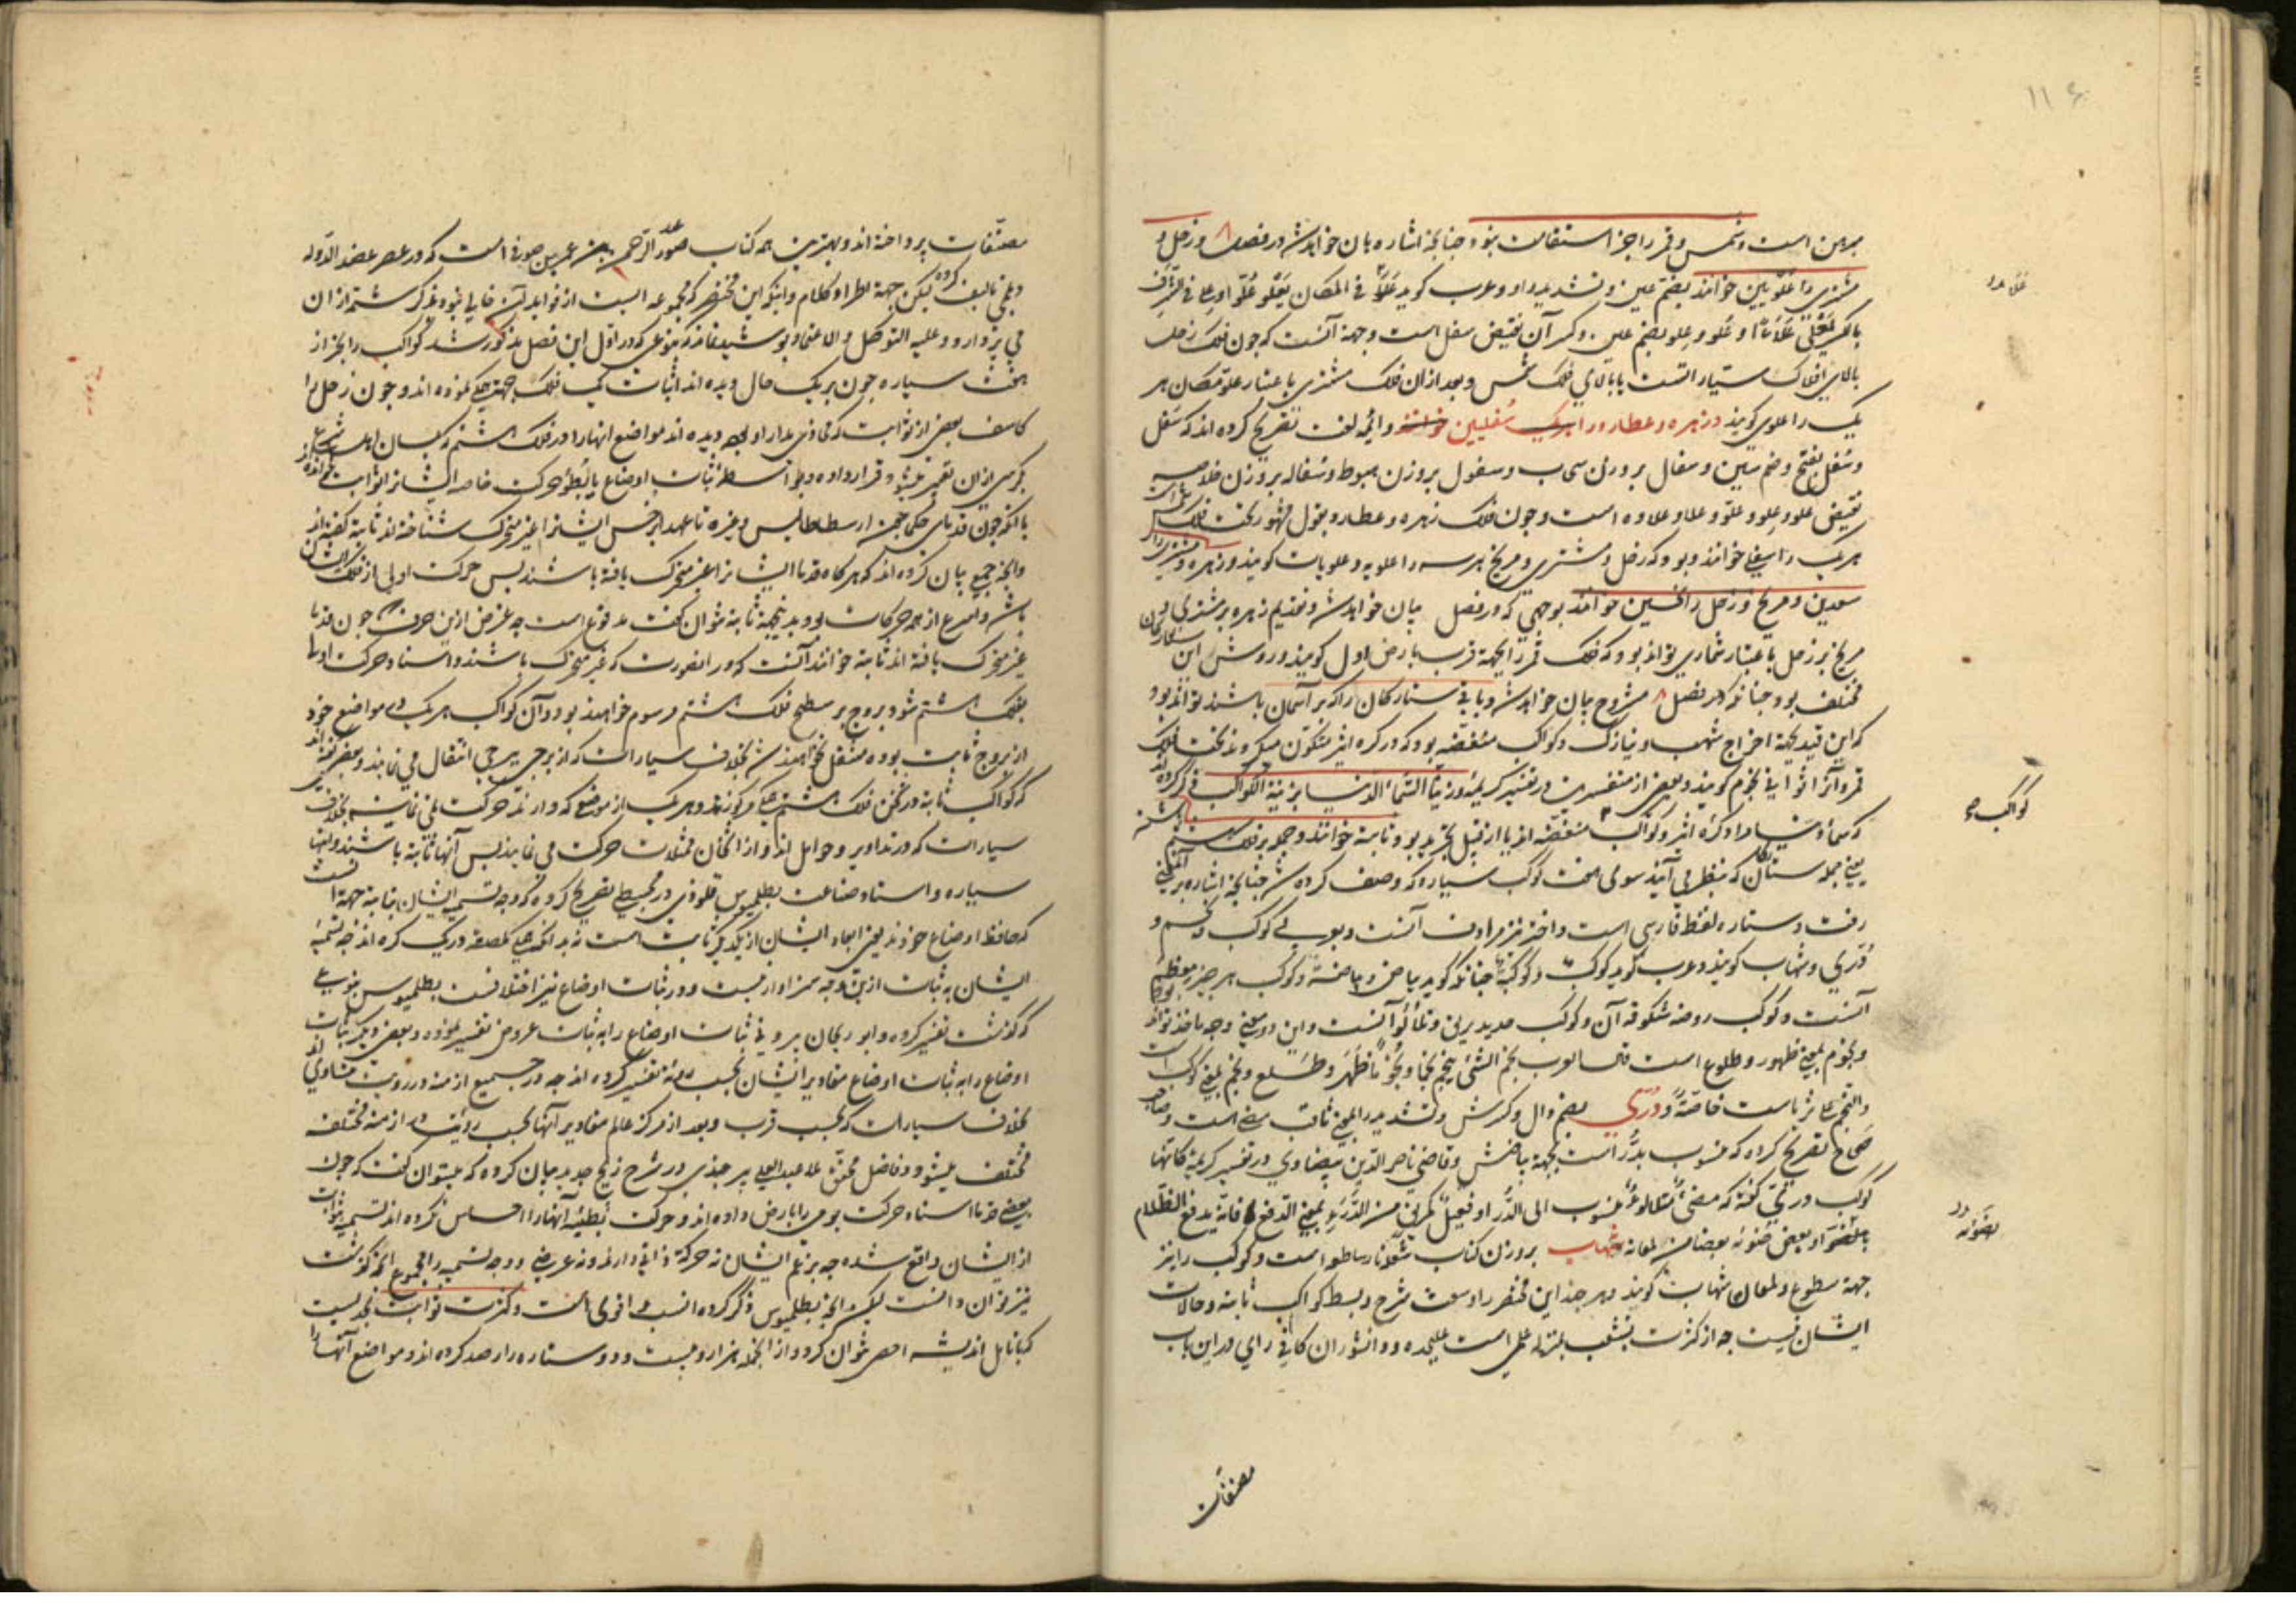 ۱۱۶
مبرهن است و شمس و قمر را جز استقامت نبود چنانچه اشاره بآن خواهد شد در فصل ۸ و زحل و
مشتری را علویین خوانند بضم عین و تشدید واو و عرب گوید علا فی المکان یعلو علوا و علی فی الشرف
بالکسر یعلی علاء و علو و علو بضم عین و کسر آن نقیض سفل است و جهة آنست که چون فلک زحل
بالای افلاک سیارات است یا بالای فلک شمس و بعد ازان فلک مشتری باعتبار علو مکان هر
یک را علوی گویند و زهره و عطارد را هریک سفلیین خوانند و ائمه لغت تصریح کرده اند که سفل
و سفل بفتح و ضم سین و سفال بروزن سحاب و سفول بروزن هبوط و سفاله بروزن خلاصه
نقیض علو و علو و علو و علا و علاوه است و چون فلک زهره و عطارد بقول مشهور تحت فلک شمس است
هریک را سفلی خوانند و بود که زحل و مشتری و مریخ هر سه را علویه و علویات گویند و زهره و مشتری را
سعدین و مریخ و زحل را نحسین خوانند بوجهی که در فصل بیان خواهد شد و تقدیم زهره بر مشتری و
مریخ بر زحل باعتبار شماری تواند بود که فلک قمر را بجهة قرب بارض اول گویند و روش این ستارگان
مختلف بود چنانکه در فصل ۸ مشروح بیان خواهد شد و باقی ستارگان را که بر آسمان باشند تواند بود
که این قید بجهة اخراج شهب و نیازک و کواکب منقضه بود که در کره اثیر متکون میگردند تحت فلک
قمر و آنرا ثوانی نجوم گویند و بعضی از مفسرین در تفسیر کریمه و زینا السماء الدنیا بزینة الکواکب ذکر کرده اند
که سماء دنیا مراد کره اثیر و کواکب منقضه اند یا از قبیل تجرید بود و ثابته خوانند و جمله بر فلک هشتم باشند
یعنی جمله ستارگان که بنظر می آیند سوای هفت کوکب سیاره که وصف کرده شد چنانچه اشاره بر این معنی
رفت و ستاره لفظ فارسی است و اختر نیز مرادف آنست و بعربی کوکب و نجم و
دری و شهاب گویند و عرب گوید کوکب و کوکبة چنانکه گوید بیاض و بیاضة و کوکب هر چیز معظم
آنست و کوکب روضه شکوفه آن و کوکب حدید بریق و تلألؤ آنست و این دو معنی وجه ماخذ تواند بود
و نجوم بمعنی ظهور و طلوع است قال العرب نجم الشئ ینجم نجما و نجوما ظهر و طلع و نجم بمعنی کوکب است
و النجم علم ثریاست خاصة و دری بضم دال و کسرش و تشدید را بمعنی ثاقب مضی است و صاحب
صحاح تصریح کرده که منسوب بدر است بجهة بیاضش و قاضی ناصر الدین بیضاوی در تفسیر کریمه کانها
کوکب دری گفته که مضی متلألؤ منسوب الی الدر او فعیل کمریق من الدرء بمعنی الدفع فانه یدفع الظلام
بضوئه او بعض ضوئه بعضا من لمعانه و شهاب بروزن کتاب شعله نار ساطع است و کوکب را نیز
جهة سطوع و لمعان شهاب گویند و هر چند این مختصر را وسعت شرح و بسط کواکب ثابته و حالات
ایشان نیست چه از کثرت شعب بمنزله علمی است علیحده و دانشوران کافی رای در این باب
مصنفات
کواکب
بضوئه
مصنفات پرداخته اند و بهترین همه کتاب صور عبد الرحمن بن عمر بن صوفی است که در عصر عضد الدوله
دیلمی تالیف کرده لیکن جهة اطراد کلام و اینکه این مختصر که مجموعه ایست از فواید آن خالی نبود بذکر شمه ازان
می پردازد و علیه التوکل و الاعتماد پوشیده نماند که بنوعی که در اول این فصل مذکور شد کواکب را بجز از
هفت سیاره چون بر یک حال دیده اند اثبات یک فلک جهة جمله نموده اند و چون زحل را
کاسف بعضی از ثوابت که محاذی مدار او بود دیده اند مواضع آنها را در فلک هشتم که بلسان اهل شرع
بکرسی ازان تعبیر میشود قرار داده و بواسطه ثبات اوضاع یا بطؤ حرکت خاصه ایشانرا ثوابت خوانده اند
یا آنکه چون قدمای حکما چون ارسطاطالیس و غیره تا عهد ابرخس ایشانرا غیر متحرک شناخته اند ثابته گفته اند
و آنچه جمعی بیان کرده اند که هرگاه قدما ایشانرا غیر متحرک یافته باشند پس حرکت اولی از فلک ایشان
باشد و اسرع از همه حرکات بود بدین جهة ثابته نتوان گفت مدفوع است چه غرض ازین حرف چون قدما
غیر متحرک یافته اند ثابته خوانند آنست که در اینصورت که غیر متحرک باشند و اسناد حرکت اولی
بفلک هشتم شود بروج بر سطح فلک هشتم مرسوم خواهند بود و آن کواکب هریک در مواضع خود
از بروج ثابت بوده منتقل نخواهند شد بخلاف سیارات که از برجی ببرجی انتقال می نمایند و بعضی گفته اند
که کواکب ثابته در ثخن فلک هشتم مرکوزند و هریک از موضعی که دارند حرکت نمی نمایند بخلاف
سیارات که در تداویر و حوامل اند و از اثخان ممثلات حرکت می نمایند پس آنها ثابته باشند و اینها
سیاره و استاد صناعت بطلمیوس قلوذی در مجسطی تصریح کرده که وجه تسمیه ایشان بثابته جهة آنست
که حافظ اوضاع خودند یعنی ابعاد ایشان از یکدیگر ثابت است نه بدانکه جمله ملصق در یک کره اند چه تسمیه
ایشان به ثبات ازین وجه سزاوار نیست و در ثبات اوضاع نیز اختلافست بطلمیوس بنوعی
که گذشت تفسیر کرده و ابوریحان بیرونی ثبات اوضاع را به ثبات عروض تفسیر نموده و بعضی دیگر ثبات
اوضاع را به ثبات اوضاع مقادیر ایشان بحسب رویة تفسیر کرده اند چه در جمیع ازمنه در رویت متساوی اند
بخلاف سیارات که بحسب قرب و بعد از مرکز عالم مقادیر آنها بحسب رؤیت در ازمنه مختلفه
مختلف میشود و فاضل محقق ملا عبد العلی بیرجندی در شرح زیج جدید بیان کرده که میتوان گفت که چون
بعضی قدما اسناد حرکت یومی را بارض داده اند و حرکت بطیئه آنها را احساس نکرده اند تسمیه بثوابت
از ایشان واقع شده چه بزعم ایشان نه حرکة ذاتی دارند و نه عرضی و وجه تسمیه را مجموع آنچه گذشت
نیز توان دانست لیکن آنچه بطلمیوس ذکر کرده انسب و اقوی است و کثرت ثوابت بحدیست
که بانامل اندیشه احصا نتوان کرد و از آنجمله هزار و بیست و دو ستاره را رصد کرده اند و مواضع آنها را